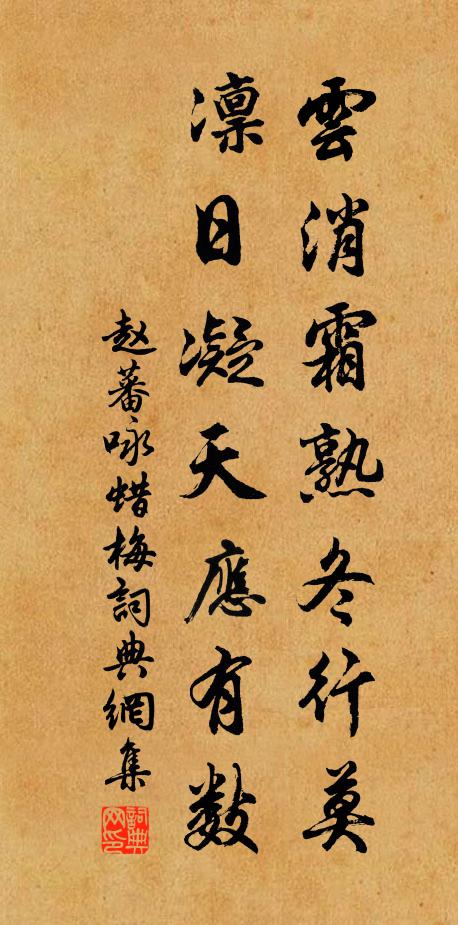 雲消霜熟冬行莫
凛日凝天應有數
赵蕃咏蜡梅詞典網集
詞典网印